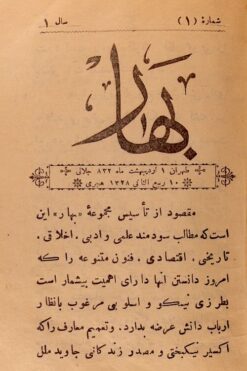 شمارهٔ (۱) سال ۱
بهار
طهران ۱ اردیبهشت ماه ۸۳۲ جلالی
۱۰ ربیع الثانی ۱۳۲۸ هجری
مقصود از تأسیس مجموعهٔ «بهار» این
است که مطالب سودمند علمی و ادبی ، اخلاقی ،
تاریخی ، اقتصادی ، فنون متنوعه را که
امروز دانستن آنها دارای اهمیت بیشمار است
بطرزی نیکو و اسلوبی مرغوب بانظار
ارباب دانش عرضه بدارد. وتعمیم معارف را که
اکسیر نیکبختی و مصدر زندگانی جاوید ملل